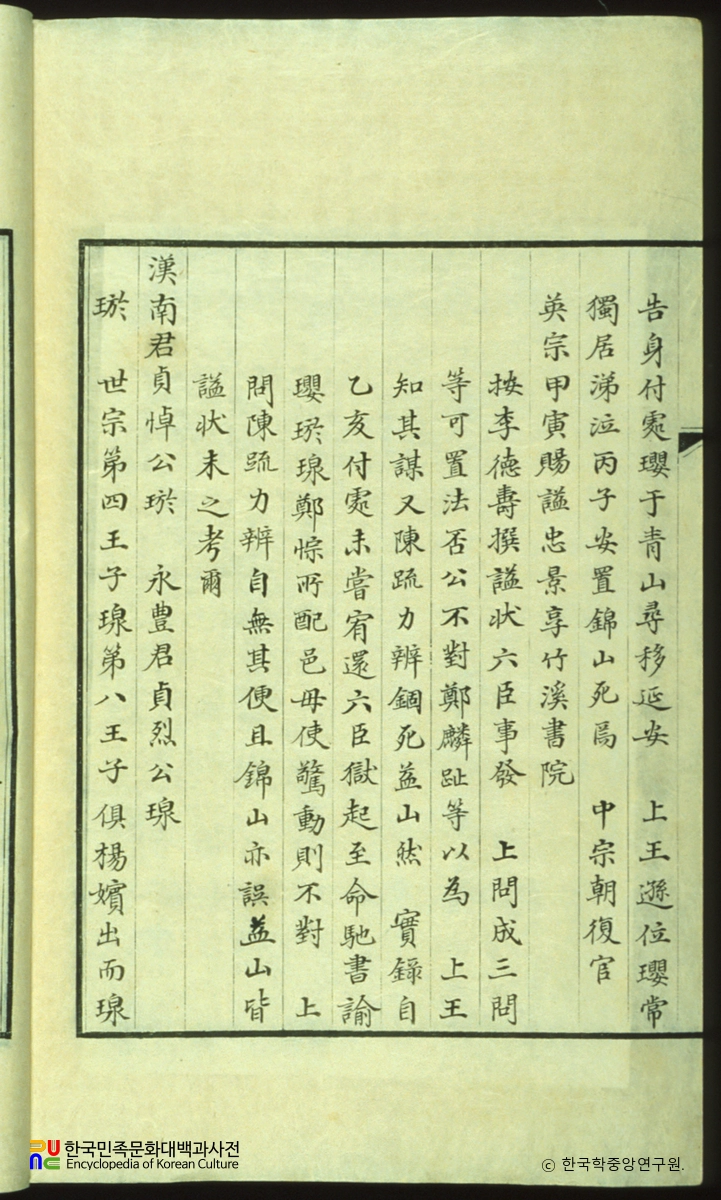 告身付處瓔于青山尋移延安 上王遜位瓔常
獨居涕泣丙子安置錦山死焉 中宗朝復官
英宗甲寅賜諡忠景享竹溪書院
按李德壽撰諡狀六臣事發 上問成三問
等可置法否公不對鄭麟趾等以為 上王
知其謀又陳疏力辨錮死益山然 實錄自
乙亥付處未嘗宥還六臣獄起至命馳書諭
瓔𤥽瑔鄭悰所配邑毋使驚動則不對 上
問陳疏力辨自無其便且錦山亦誤益山皆
諡狀未之考爾
漢南君貞悼公𤥽 永豊君貞烈公瑔
𤥽 世宗第四王子瑔第八王子俱楊嬪出而瑔
한국민족문화대백과사전
Encyclopedia of Korean Culture
ⓒ 한국학중앙연구원.